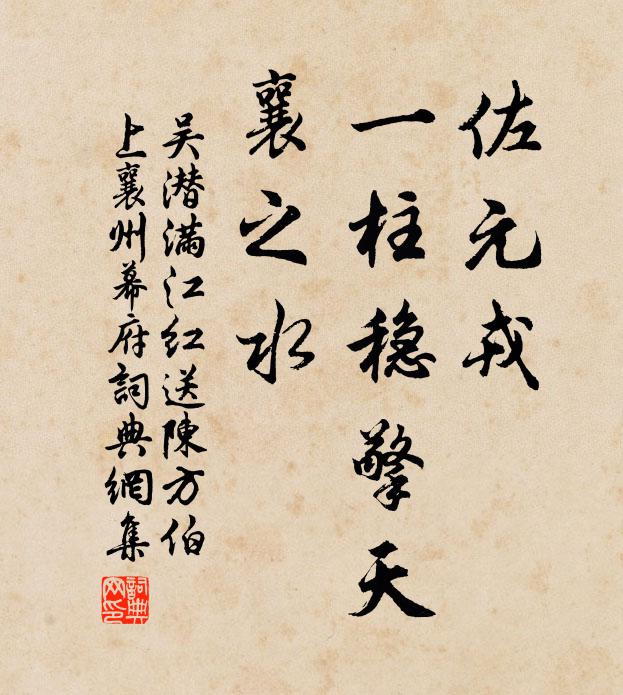 佐元戎
一柱稳擎天
襄之水
吴潜满江红送陳方伯
上襄州幕府詞典網集
詞典
网印